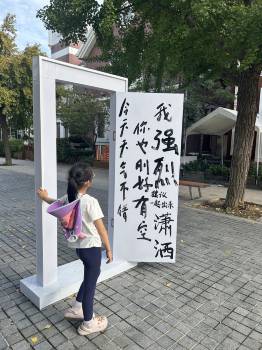 今天天气不错
你也刚好有空
我强烈
建议
一起出来
潇洒